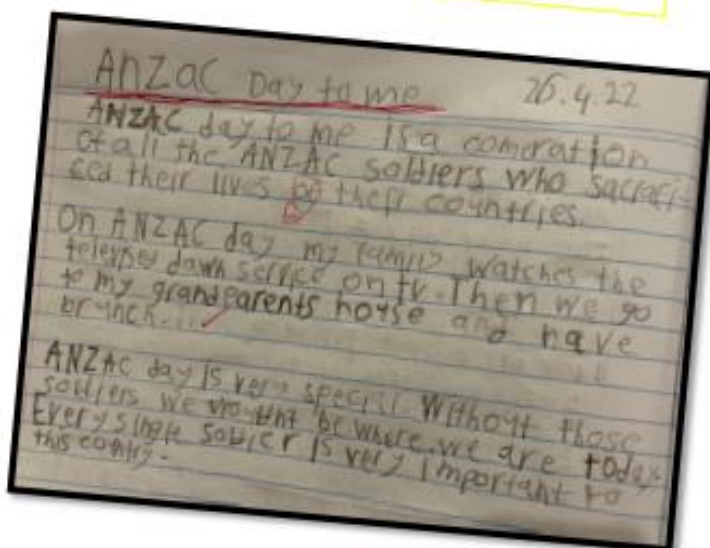 ANZAC Day to me 26.4.22
ANZAC day to me is a comeration
of all the ANZAC soldiers who sacrafi-
ced their lives their countries.
On ANZAC day my family watches the
televised dawn service on tv. Then we go
to my grandparents house and have
brunch....
ANZAC day is very special Without those
soldiers we wouldnt be where we are today.
Every single soldier is very important to
this country.